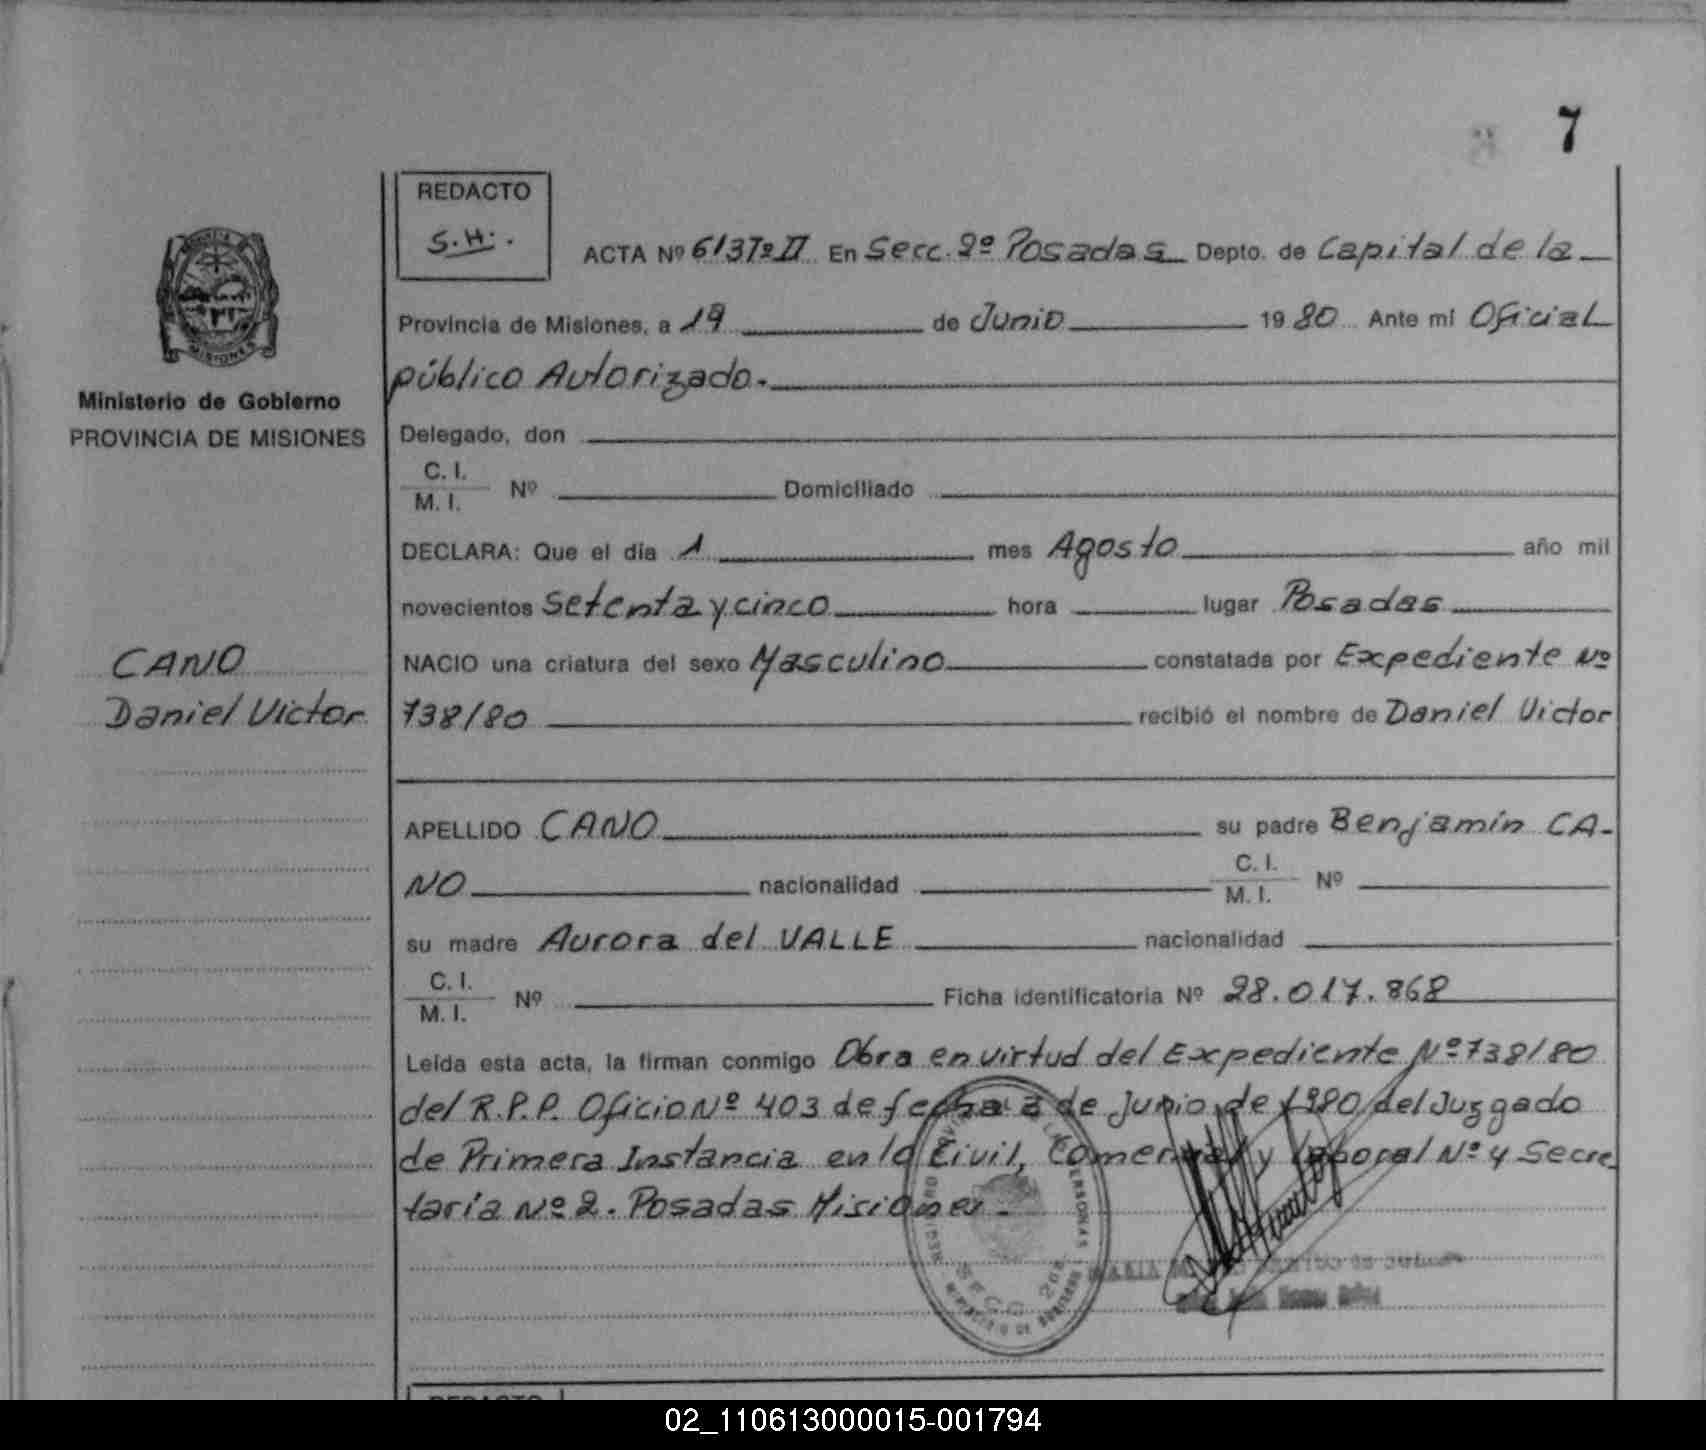 7
REDACTO
S.H.
ACTA Nº 613Tº II En Secc. 2º Posadas Depto. de Capital de la
Provincia de Misiones, a 19 de Junio 1980 Ante mi Oficial
público Autorizado.
MISIONES
Ministerio de Gobierno
PROVINCIA DE MISIONES
Delegado, don
C. I.
M. I. Nº Domiciliado
DECLARA: Que el día 1 mes Agosto año mil
novecientos Setenta y cinco hora lugar Posadas
CANO
Daniel Victor
NACIO una criatura del sexo Masculino constatada por Expediente Nº
738/80 recibió el nombre de Daniel Victor
APELLIDO CANO su padre Benjamín CA-
NO nacionalidad C. I. M. I. Nº
su madre Aurora del VALLE nacionalidad
C. I.
M. I. Nº Ficha identificatoria Nº 28.017.868
Leída esta acta, la firman conmigo Obra en virtud del Expediente Nº 738/80
del R.P.P. Oficio Nº 403 de fecha 2 de Junio de 1980 del Juzgado
de Primera Instancia en lo Civil, Comercial y Laboral Nº 4 Secre
taría Nº 2. Posadas Misiones.
02_110613000015-001794